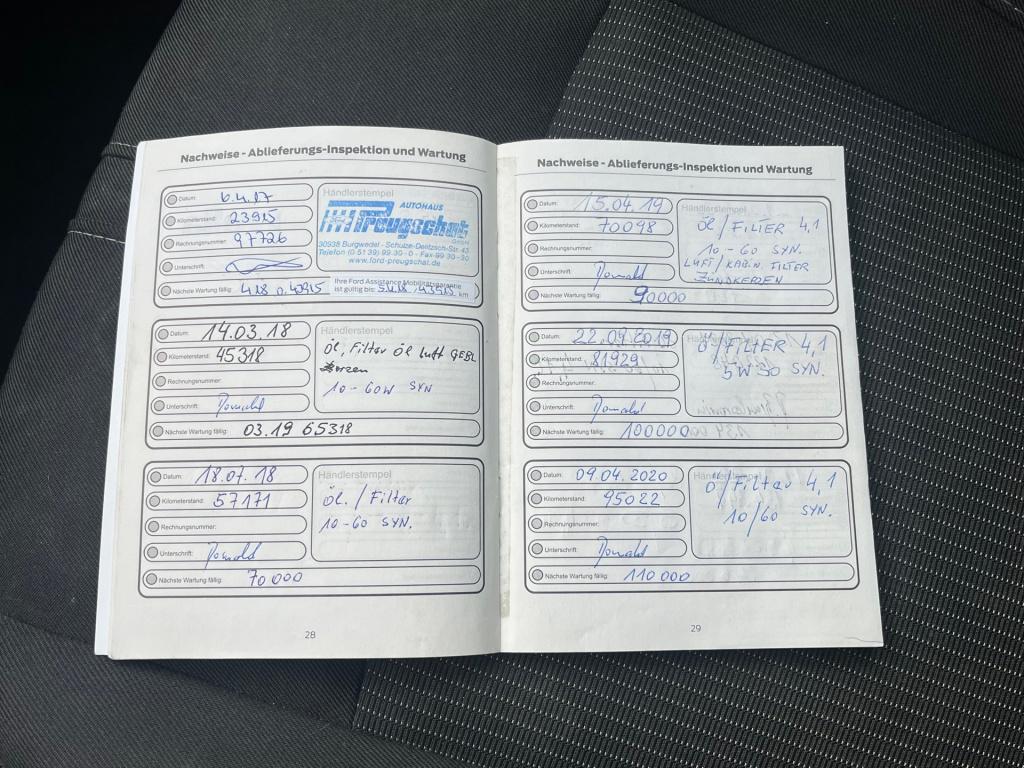 Nachweise - Ablieferungs-Inspektion und Wartung
Datum: 6.4.17
Kilometerstand: 23915
Rechnungsnummer: 97726
Unterschrift:
Händlerstempel
AUTOHAUS
Preugschat
GmbH
30938 Burgwedel - Schulze-Delitzsch-Str. 43
Telefon (0 51 39) 99 30 - 0 - Fax 99 30 - 30
www.ford-preugschat.de
Nächste Wartung fällig: 4.18 o. 43915
Ihre Ford Assistance Mobilitätsgarantie
ist gültig bis: 5.4.18 / 43915 km
Datum: 14.03.18
Kilometerstand: 45318
Rechnungsnummer:
Unterschrift: Donald
Händlerstempel
Öl, Filter Öl Luft GEBL
kerzen
10-60W SYN
Nächste Wartung fällig: 03.19 65318
Datum: 18.07.18
Kilometerstand: 57171
Rechnungsnummer:
Unterschrift: Donald
Händlerstempel
Öl. / Filter
10-60 SYN.
Nächste Wartung fällig: 70 000
28
Nachweise - Ablieferungs-Inspektion und Wartung
Datum: 15.04.19
Kilometerstand: 70098
Rechnungsnummer:
Unterschrift: Donald
Händlerstempel
Öl / FILTER 4,1
10-60 SYN.
LUFT / KABIN. FILTER
ZÜNDKERDEN
Nächste Wartung fällig: 90000
Datum: 22.09.2019
Kilometerstand: 81929
Rechnungsnummer:
Unterschrift: Donald
Händlerstempel
Ö / FILTER 4,1
5W30 SYN.
Nächste Wartung fällig: 100000
Datum: 09.04.2020
Kilometerstand: 95022
Rechnungsnummer:
Unterschrift: Donald
Händlerstempel
Ö / Filter 4,1
10/60 SYN.
Nächste Wartung fällig: 110 000
29